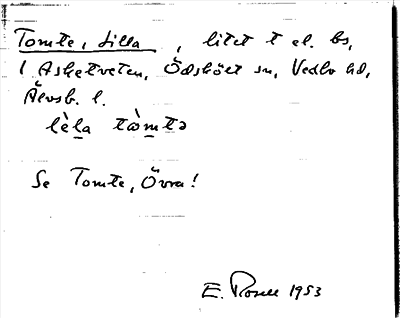 Tomte, Lilla, litet t el. bs,
i Asketveten, Ödskölt sn, Vedbo hd,
Älvsb. l.
lèla tòmtə
Se Tomte, Övra!
E. Rosell 1953